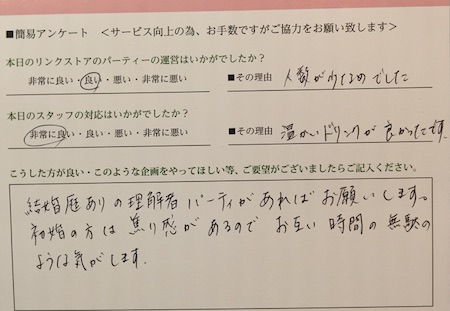 ■簡易アンケート　＜サービス向上の為、お手数ですがご協力をお願い致します＞
本日のリンクストアのパーティーの運営はいかがでしたか？
非常に良い・良い・悪い・非常に悪い　■その理由　人数が少なめでした
本日のスタッフの対応はいかがでしたか？
非常に良い・良い・悪い・非常に悪い　■その理由　温かいドリンクが良かったです。
こうした方が良い・このような企画をやってほしい等、ご要望がございましたらご記入ください。
結婚歴ありの理解者パーティがあればお願いします。
初婚の方は焦り感があるのでお互い時間の無駄の
ような気がします.